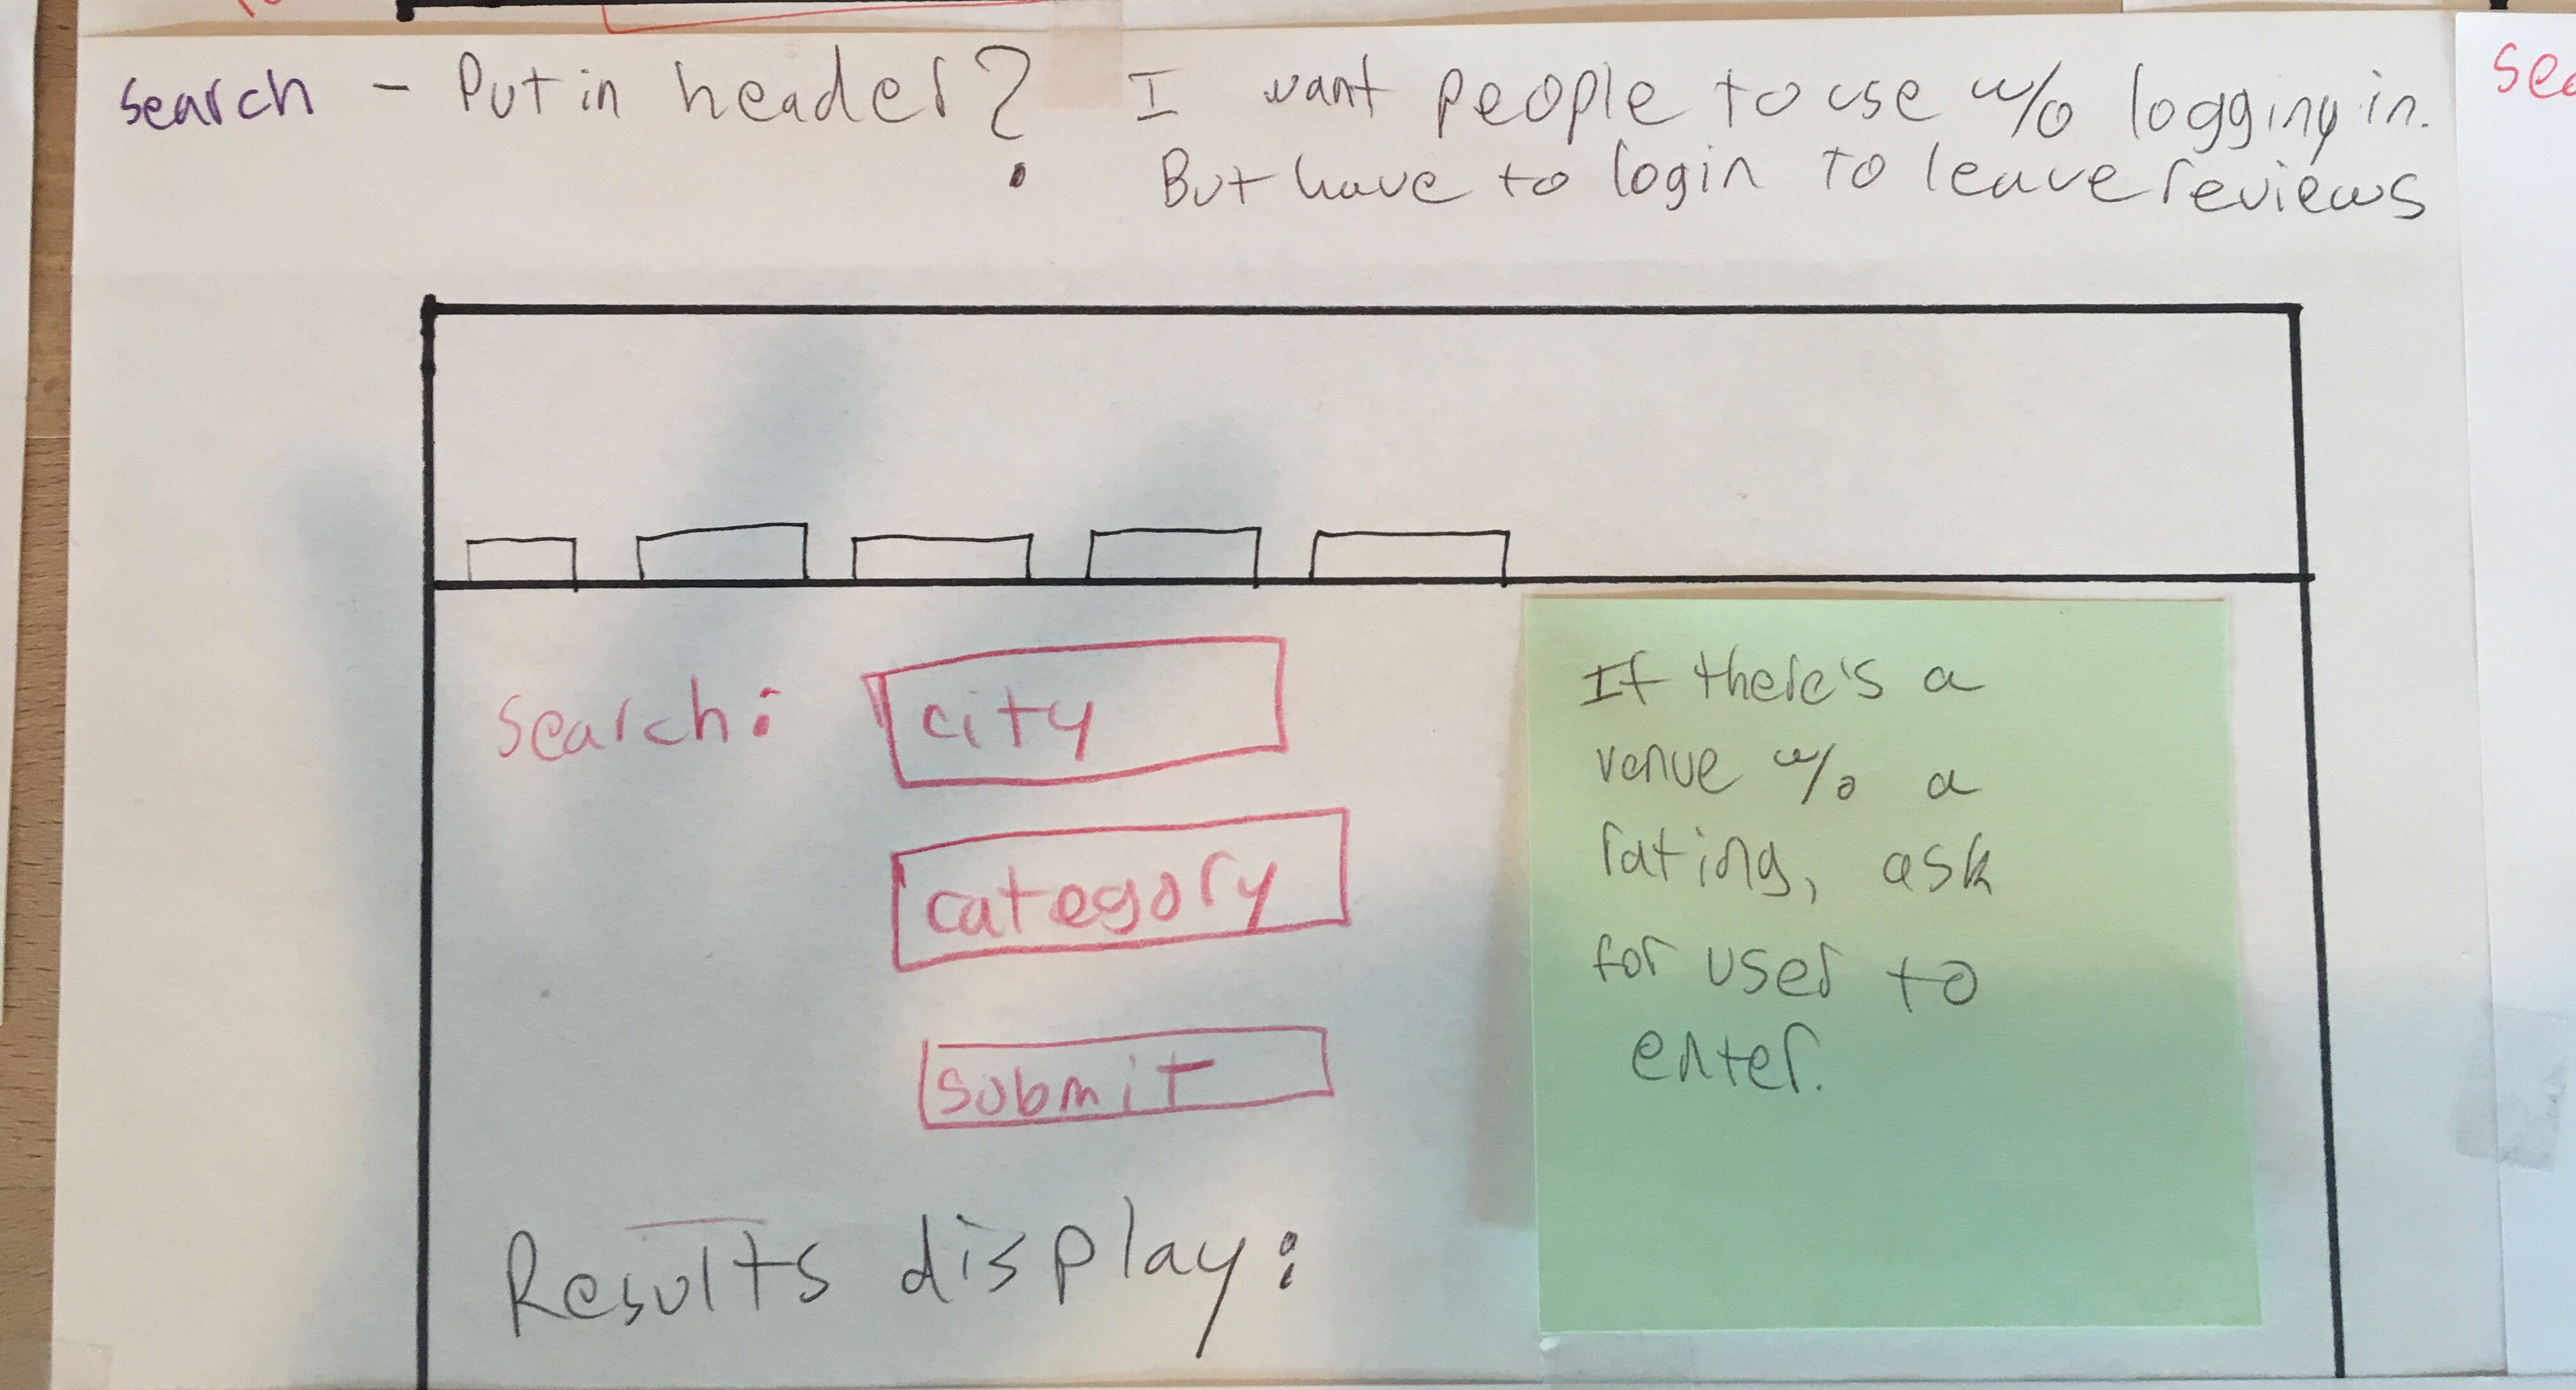 search - Put in header? I want people to use w/o logging in.
But have to login to leave reviews
search: city
category
submit
Results display:
If there's a
venue w/o a
rating, ask
for user to
enter.